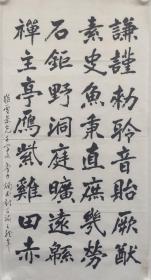 謙謹勑聆音貽厥猷
素史魚秉直庶幾勞
石鉅野洞庭曠遠緜
禪主亭鴈紫雞田赤